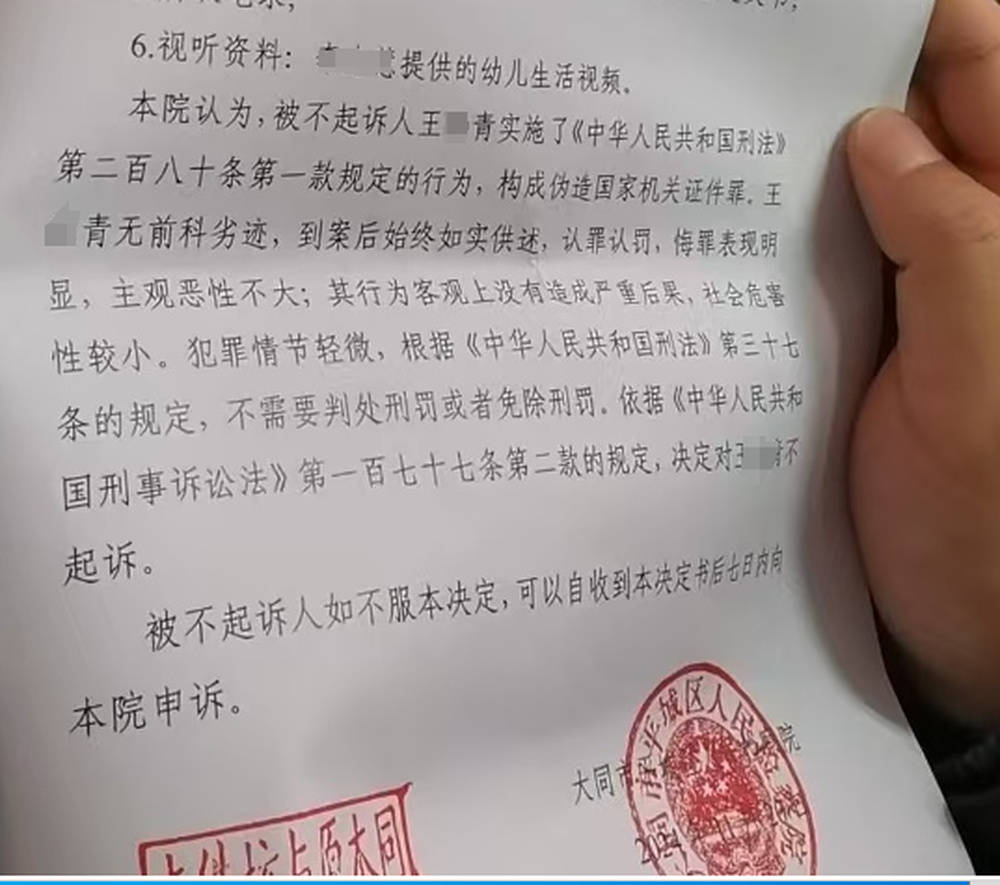 6.视听资料：提供的幼儿生活视频。
本院认为，被不起诉人王青实施了《中华人民共和国刑法》
第二百八十条第一款规定的行为，构成伪造国家机关证件罪。王
青无前科劣迹，到案后始终如实供述，认罪认罚，悔罪表现明
显，主观恶性不大；其行为客观上没有造成严重后果，社会危害
性较小。犯罪情节轻微，根据《中华人民共和国刑法》第三十七
条的规定，不需要判处刑罚或者免除刑罚。依据《中华人民共和
国刑事诉讼法》第一百七十七条第二款的规定，决定对王青不
起诉。
被不起诉人如不服本决定，可以自收到本决定书后七日内向
本院申诉。
大同市
院
平城区人民检察院
本件核与原本同